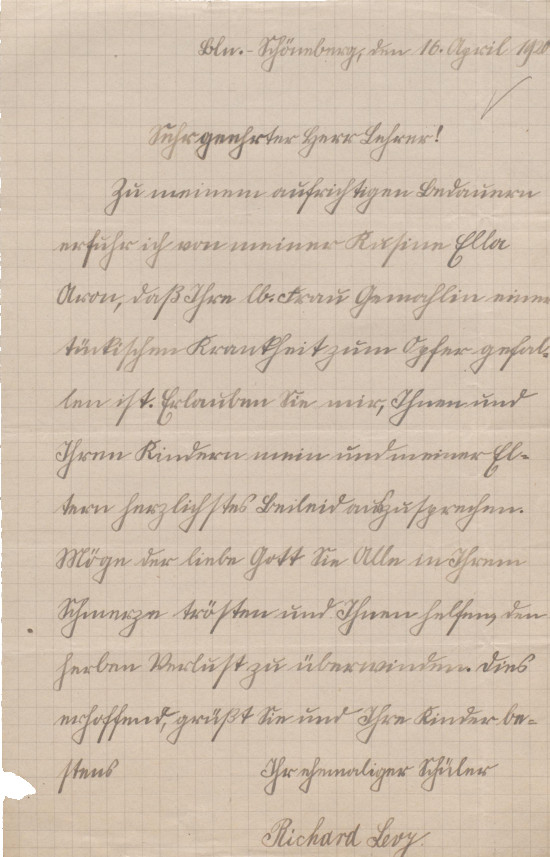 Bln.-Schöneberg, den 16. April 1920
Sehr geehrter Herr Lehrer!
Zu meinem aufrichtigen Bedauern
erfuhr ich von meiner Kusine Ella
Aron, daß Ihre lb. Frau Gemahlin einer
tückischen Krankheit zum Opfer gefal-
len ist. Erlauben Sie mir, Ihnen und
Ihren Kindern mein und meiner El-
tern herzlichstes Beileid auszusprechen.
Möge der liebe Gott Sie Alle in Ihrem
Schmerze trösten und Ihnen helfen, den
herben Verlust zu überwinden. Dies
erhoffend, grüßt Sie und Ihre Kinder be-
stens
Ihr ehemaliger Schüler
Richard Levy.